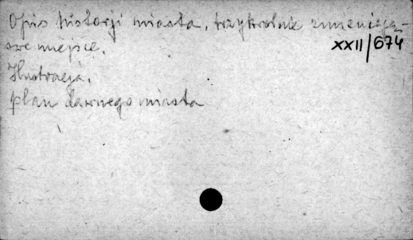 Opis historji miasta, trzykrotnie zmieniają-
ce miejsce.
XXII/674
Ilustracja.
plan dawnego miasta